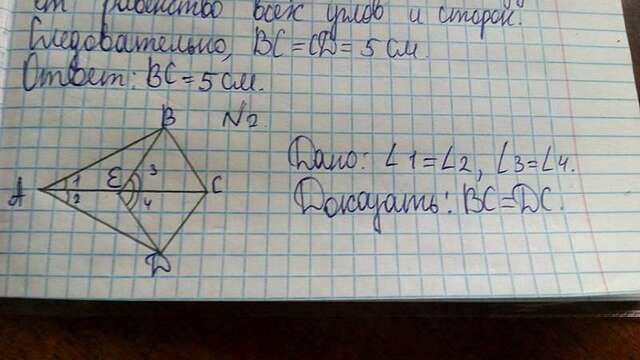 равенство всех углов и сторон.
Следовательно, BC=CD=5 см.
Ответ: BC=5 см.
N2
B
Дано: ∠1=∠2, ∠3=∠4.
A 1 2 E 3 4 C
Доказать: BC=DC.
D